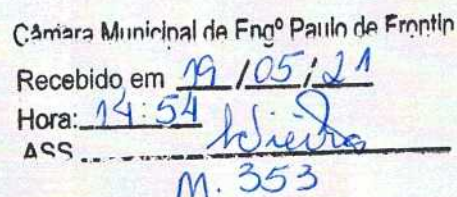 Câmara Municipal de Engº Paulo de Frontin
Recebido em 19 / 05 / 21
Hora: 14:54
ASS
M. 353